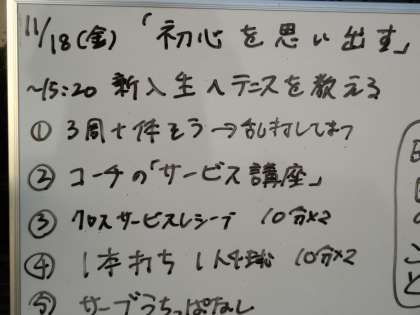 11/18(金) 「初心を思い出す」
~15:20 新入生へテニスを教える
① 3周+体そう→乱打してまつ
② コーチの「サービス講座」
③ クロスサービスレシーブ 10分×2
④ 1本打ち 1人4球 10分×2
⑤ サーブうちっぱなし
こ
と